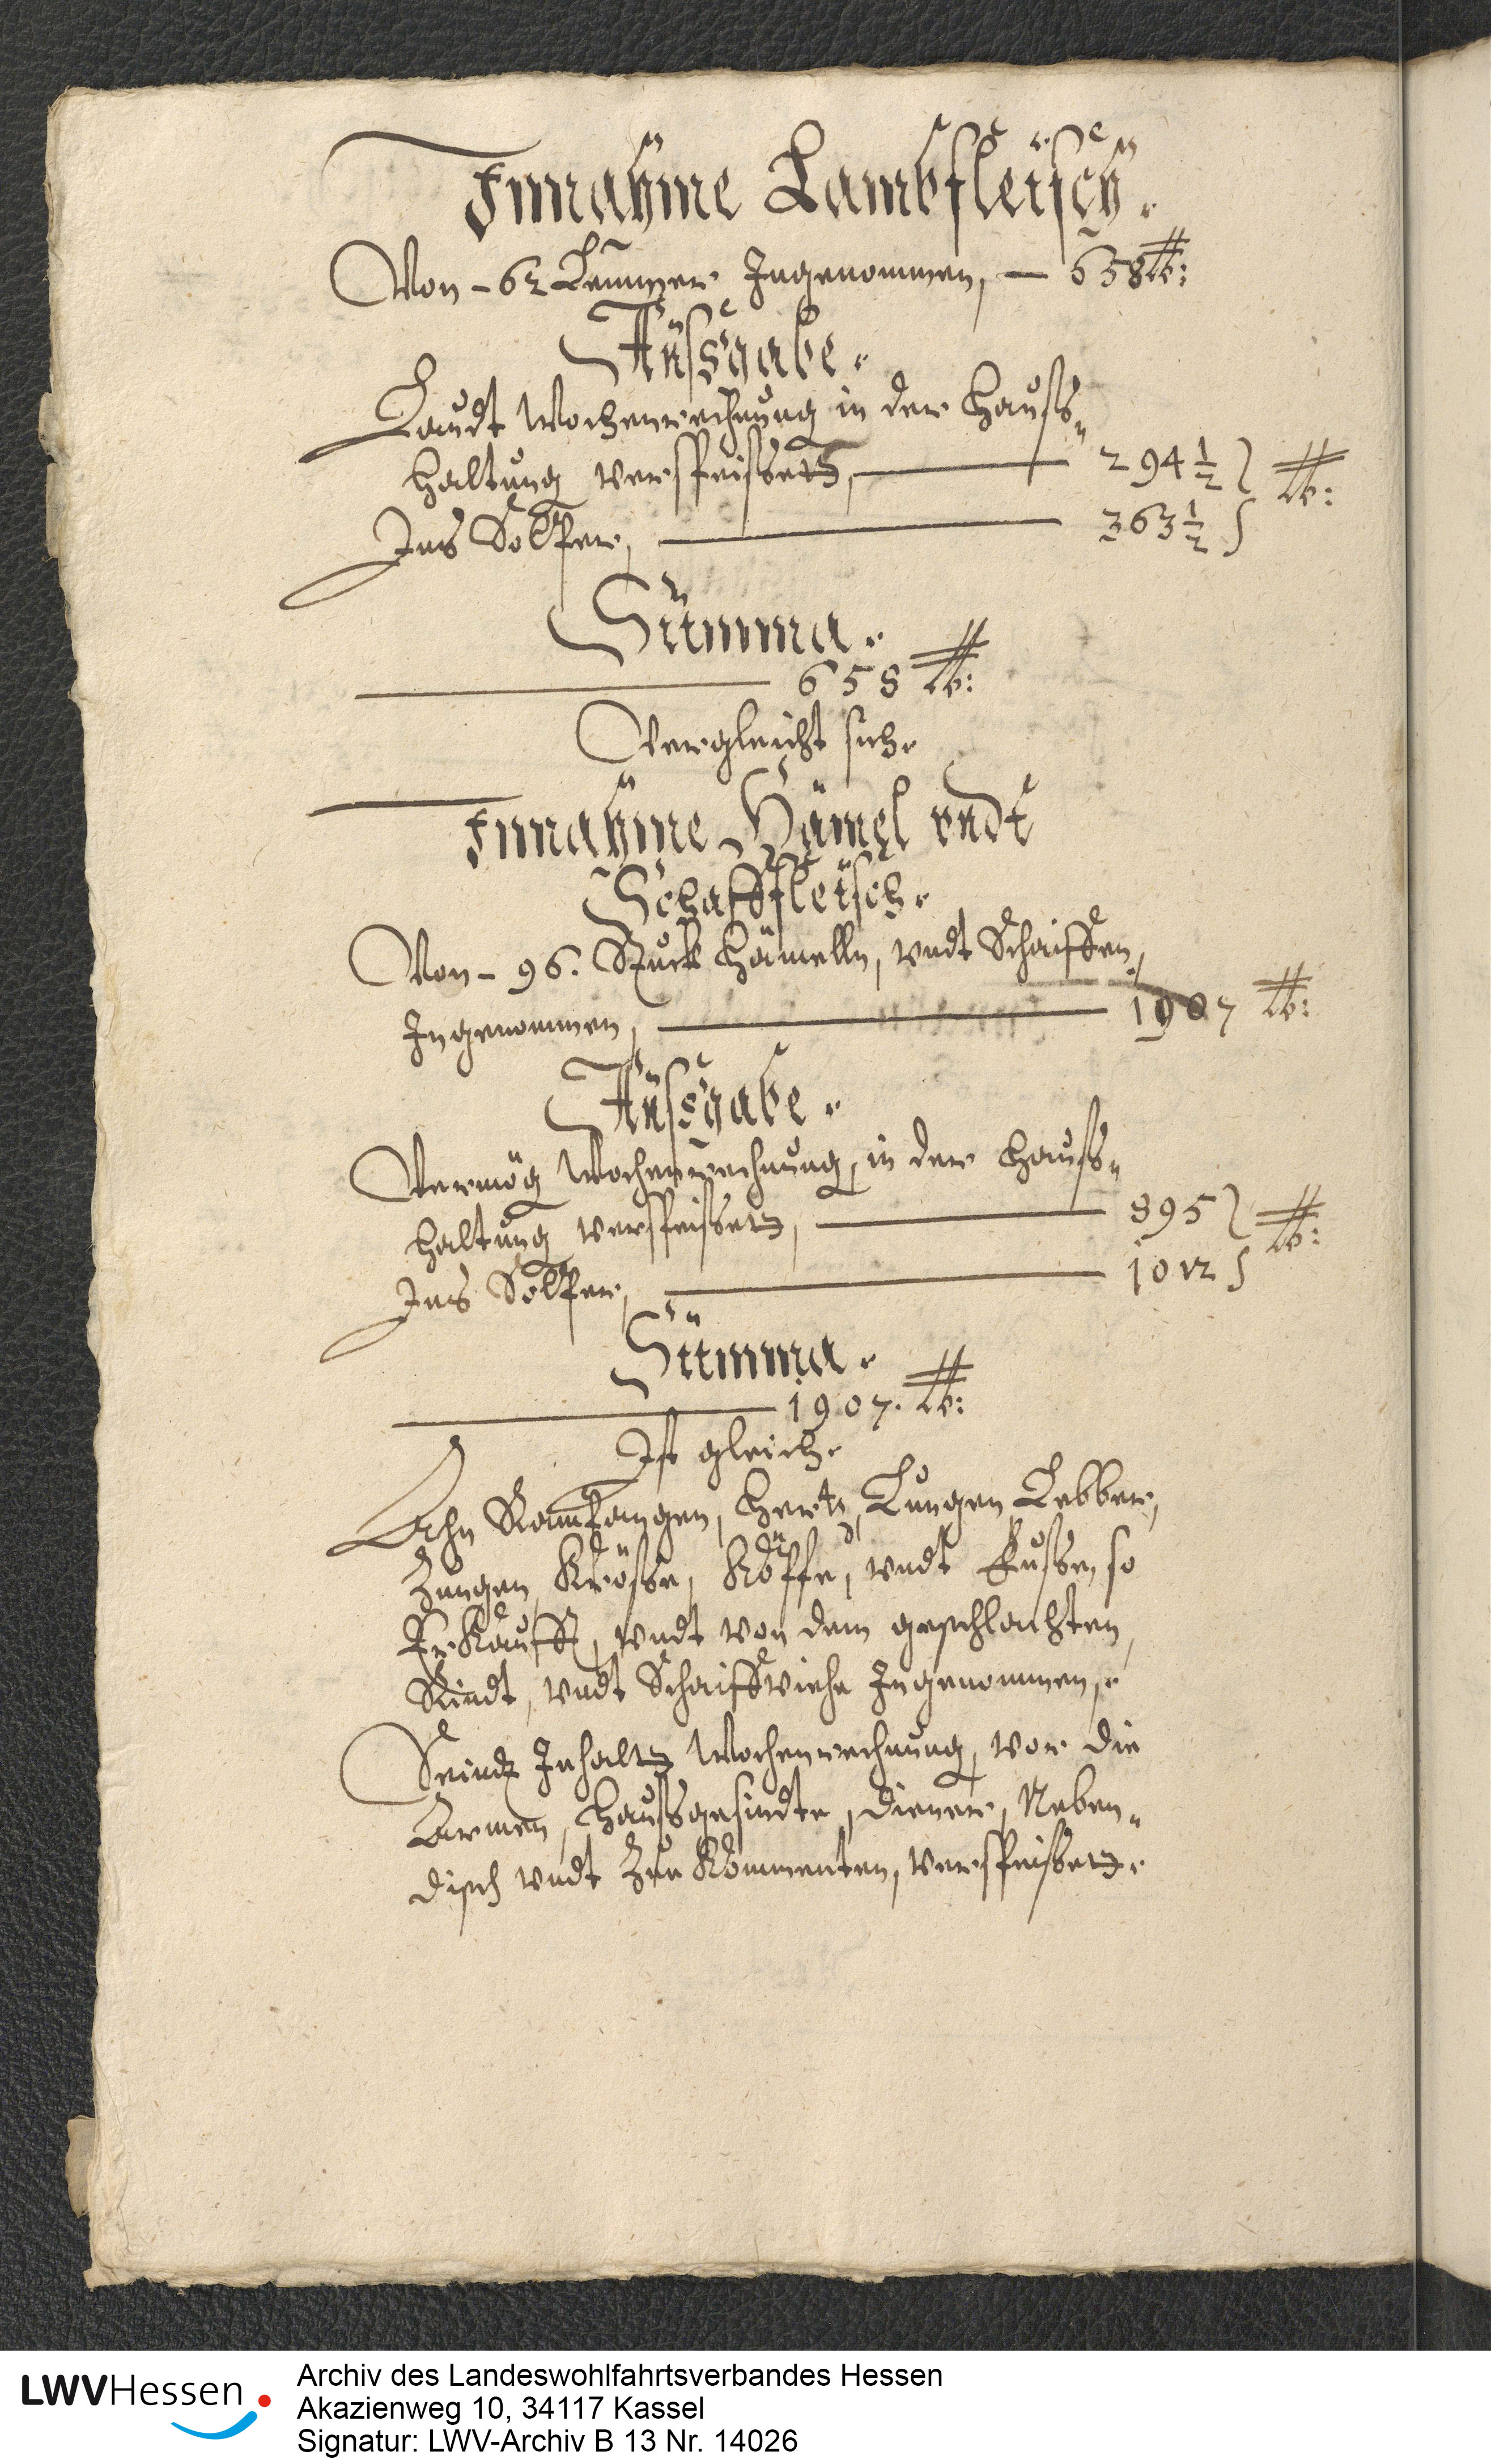 Innahme Lambfleisch.
Von - 62 Lemmer Ingenommen, - 658 lb:
Außgabe.
Laudt Wochenrechnung in der Hauß„
haltung verspeisset, 294 1/2 } lb:
Ins Sölper, 363 1/2
Summa.
658 lb:
Vergleicht sich.
Innahme Hämel vndt
Schaffleisch.
Von - 96. Stuck Hämelln, vndt Schaiffen,
Ingenommen, 1907 lb:
Außgabe.
Vermög Wochenrechnung, in der Hauß„
haltung verspeisset, 895 } lb:
Ins Sölper, 1012
Summa.
1907. lb:
Ist gleich.
Ahn Hertz, Lungen, Lebber,
Zungen, Krösse, Köpffe, vndt Fusse, so
Erkaufft, vndt von dem geschlachten,
Rindt, vndt Schaiffviehe Ingenommen,.
Seindt Inhaltz Wochenrechnung, vor die
Armen, Haußgesindte, Diener, Neben„
disch vndt Zun Kommenten, verspeisset.
LWVHessen
Archiv des Landeswohlfahrtsverbandes Hessen
Akazienweg 10, 34117 Kassel
Signatur: LWV-Archiv B 13 Nr. 14026